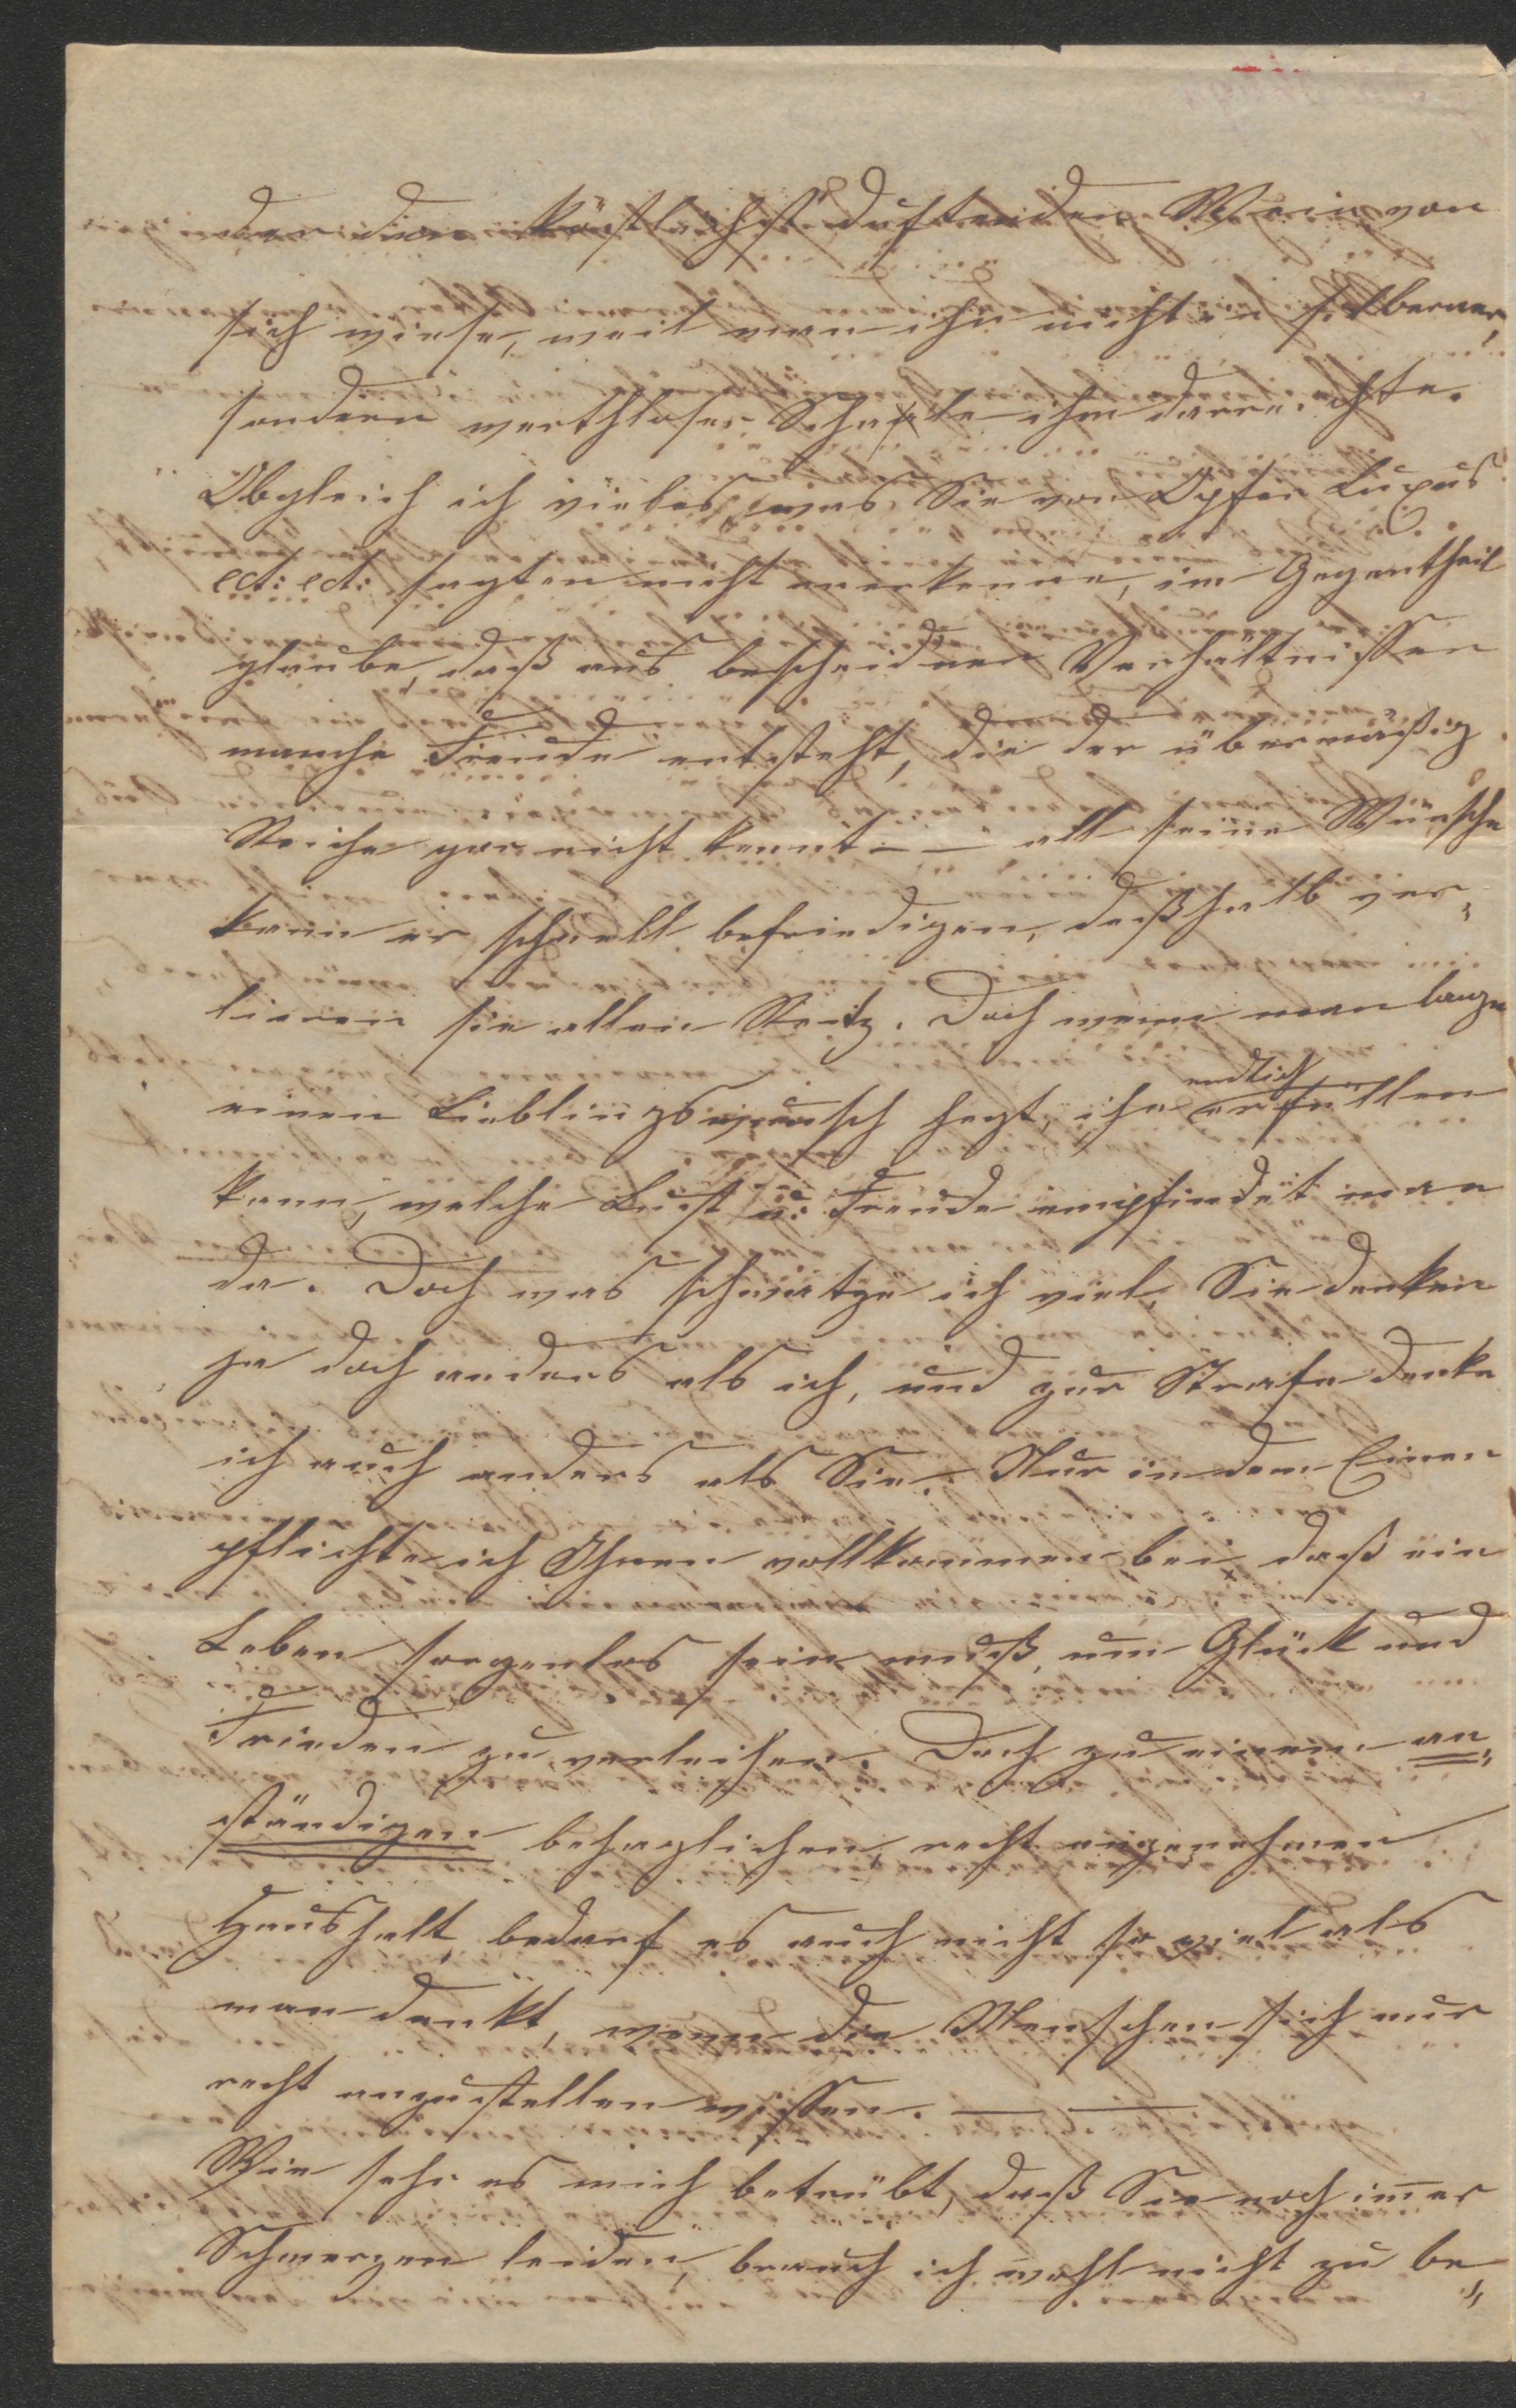 der den köstlichst duftenden Wein von
sich wiese, weil man ihn nicht in silberner,
sondern werthloser Schale ihm darreichte.
Obgleich ich vieles, was Sie von Opfer Luxus
ect: ect: sagten nicht anerkenne, im Gegentheil
glaube, daß aus bescheidnen Verhältnissen
manche Freude entsteht, die der übermäßig
Reiche gar nicht kennt — — all seine Wünsche
kann er schnell befriedigen, deßhalb ver„
lieren sie allen Reitz. Doch wenn man lange
einen Lieblingswunsch hegt, ihn endlich erfüllen
kann, welche Lust u: Freude empfindet man
da. Doch was schwatze ich viel, Sie denken
ja doch anders als ich, und zur Strafe denke
ich auch anders als Sie. Nur in dem Einen
pflichte ich Ihnen vollkommen bei, daß ein
Leben sorgenlos sein muß, um Glück und
Frieden zu verleihen. Doch zu einem an„
ständigen behaglichen, recht angenehmen
Haushalt, bedarf es auch nicht so viel als
man denkt, wenn die Menschen sich nur
recht anzustellen wissen. — —
Wie sehr es mich betrübt, daß Sie noch im̄er
Schmerzen leiden, brauch ich wohl nicht zu be„